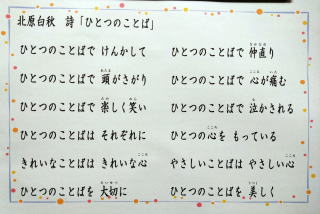 北原白秋 詩「ひとつのことば」
ひとつのことばで けんかして
ひとつのことばで 仲直り
ひとつのことばで 頭がさがり
ひとつのことばで 心が痛む
ひとつのことばで 楽しく笑い
ひとつのことばで 泣かされる
ひとつのことばは それぞれに
ひとつの心を もっている
きれいなことばは きれいな心
やさしいことばは やさしい心
ひとつのことばを 大切に
ひとつのことばを 美しく